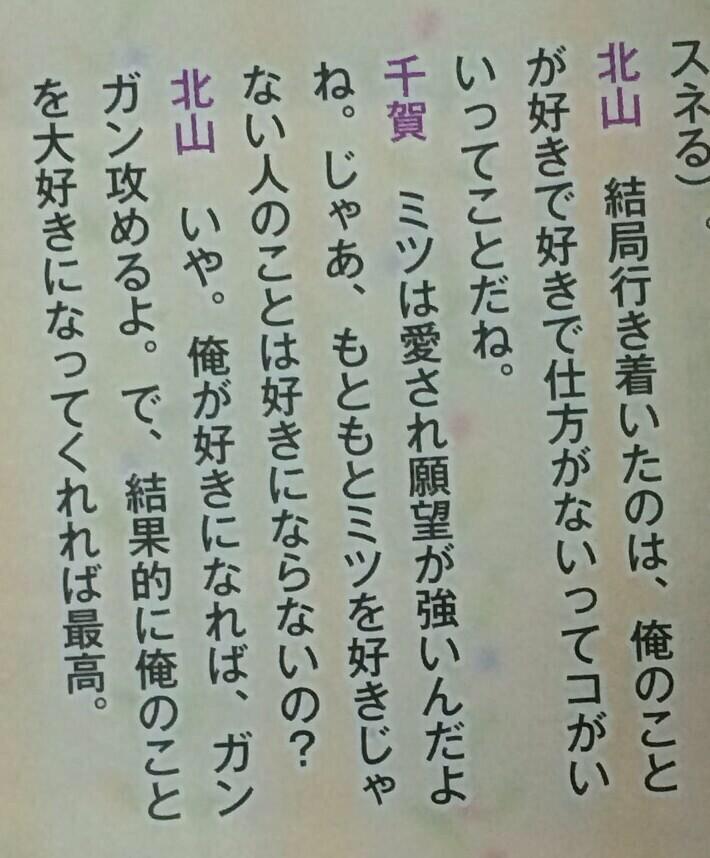 スネる）。
北山　結局行き着いたのは、俺のこと
が好きで好きで仕方がないってコがい
いってことだね。
千賀　ミツは愛され願望が強いんだよ
ね。じゃあ、もともとミツを好きじゃ
ない人のことは好きにならないの？
北山　いや。俺が好きになれば、ガン
ガン攻めるよ。で、結果的に俺のこと
を大好きになってくれれば最高。